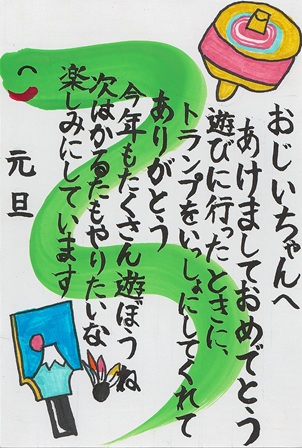 おじいちゃんへ
あけましておめでとう
遊びに行ったときに、
トランプをいっしょにしてくれて
ありがとう
今年もたくさん遊ぼうね
次はかるたもやりたいな
楽しみにしています
元旦